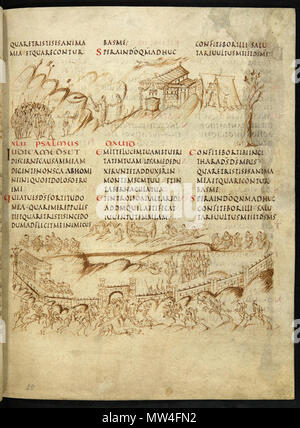 QUARETRISTISESANIMA
MEAETQUARECONTUR
BASME
SPERAINDOQMADHUC
CONFITEBORILLISALU
TARIUULTUSMEIETDSMS
XLII PSALMUS DAUID
IUDICAMEDSET
DISCERNECAUSAMMEAM
DEGENTENONSCAABHOMI
NEINIQUOETDOLOSOERU
EME
QUIATUESDSFORTITUDO
MEAQUAREMEREPPULIS
TIETQUARETRISTISINCEDO
DUMADFLIGITMEINIMICUS
EMITTELUCEMTUAMETUERI
TATEMTUAMIPSAMEDEDU
XERUNTETADDUXERIN
MONTEMSCMTUUMETIN
TABERNACULATUA
ETINTROIBOADALTAREDI
ADDMQUILAETIFICAT
IUUENTUTEMMEAM
CONFITEBORTIBIIN
CITHARADSDSMEUS
QUARETRISTISESANIMA
MEAETQUARECONTUR
BASME
SPERAINDOQMADHUC
CONFITEBORILLISALU
TARIUULTUSMEIETDSMS
alamy
MW4FN2